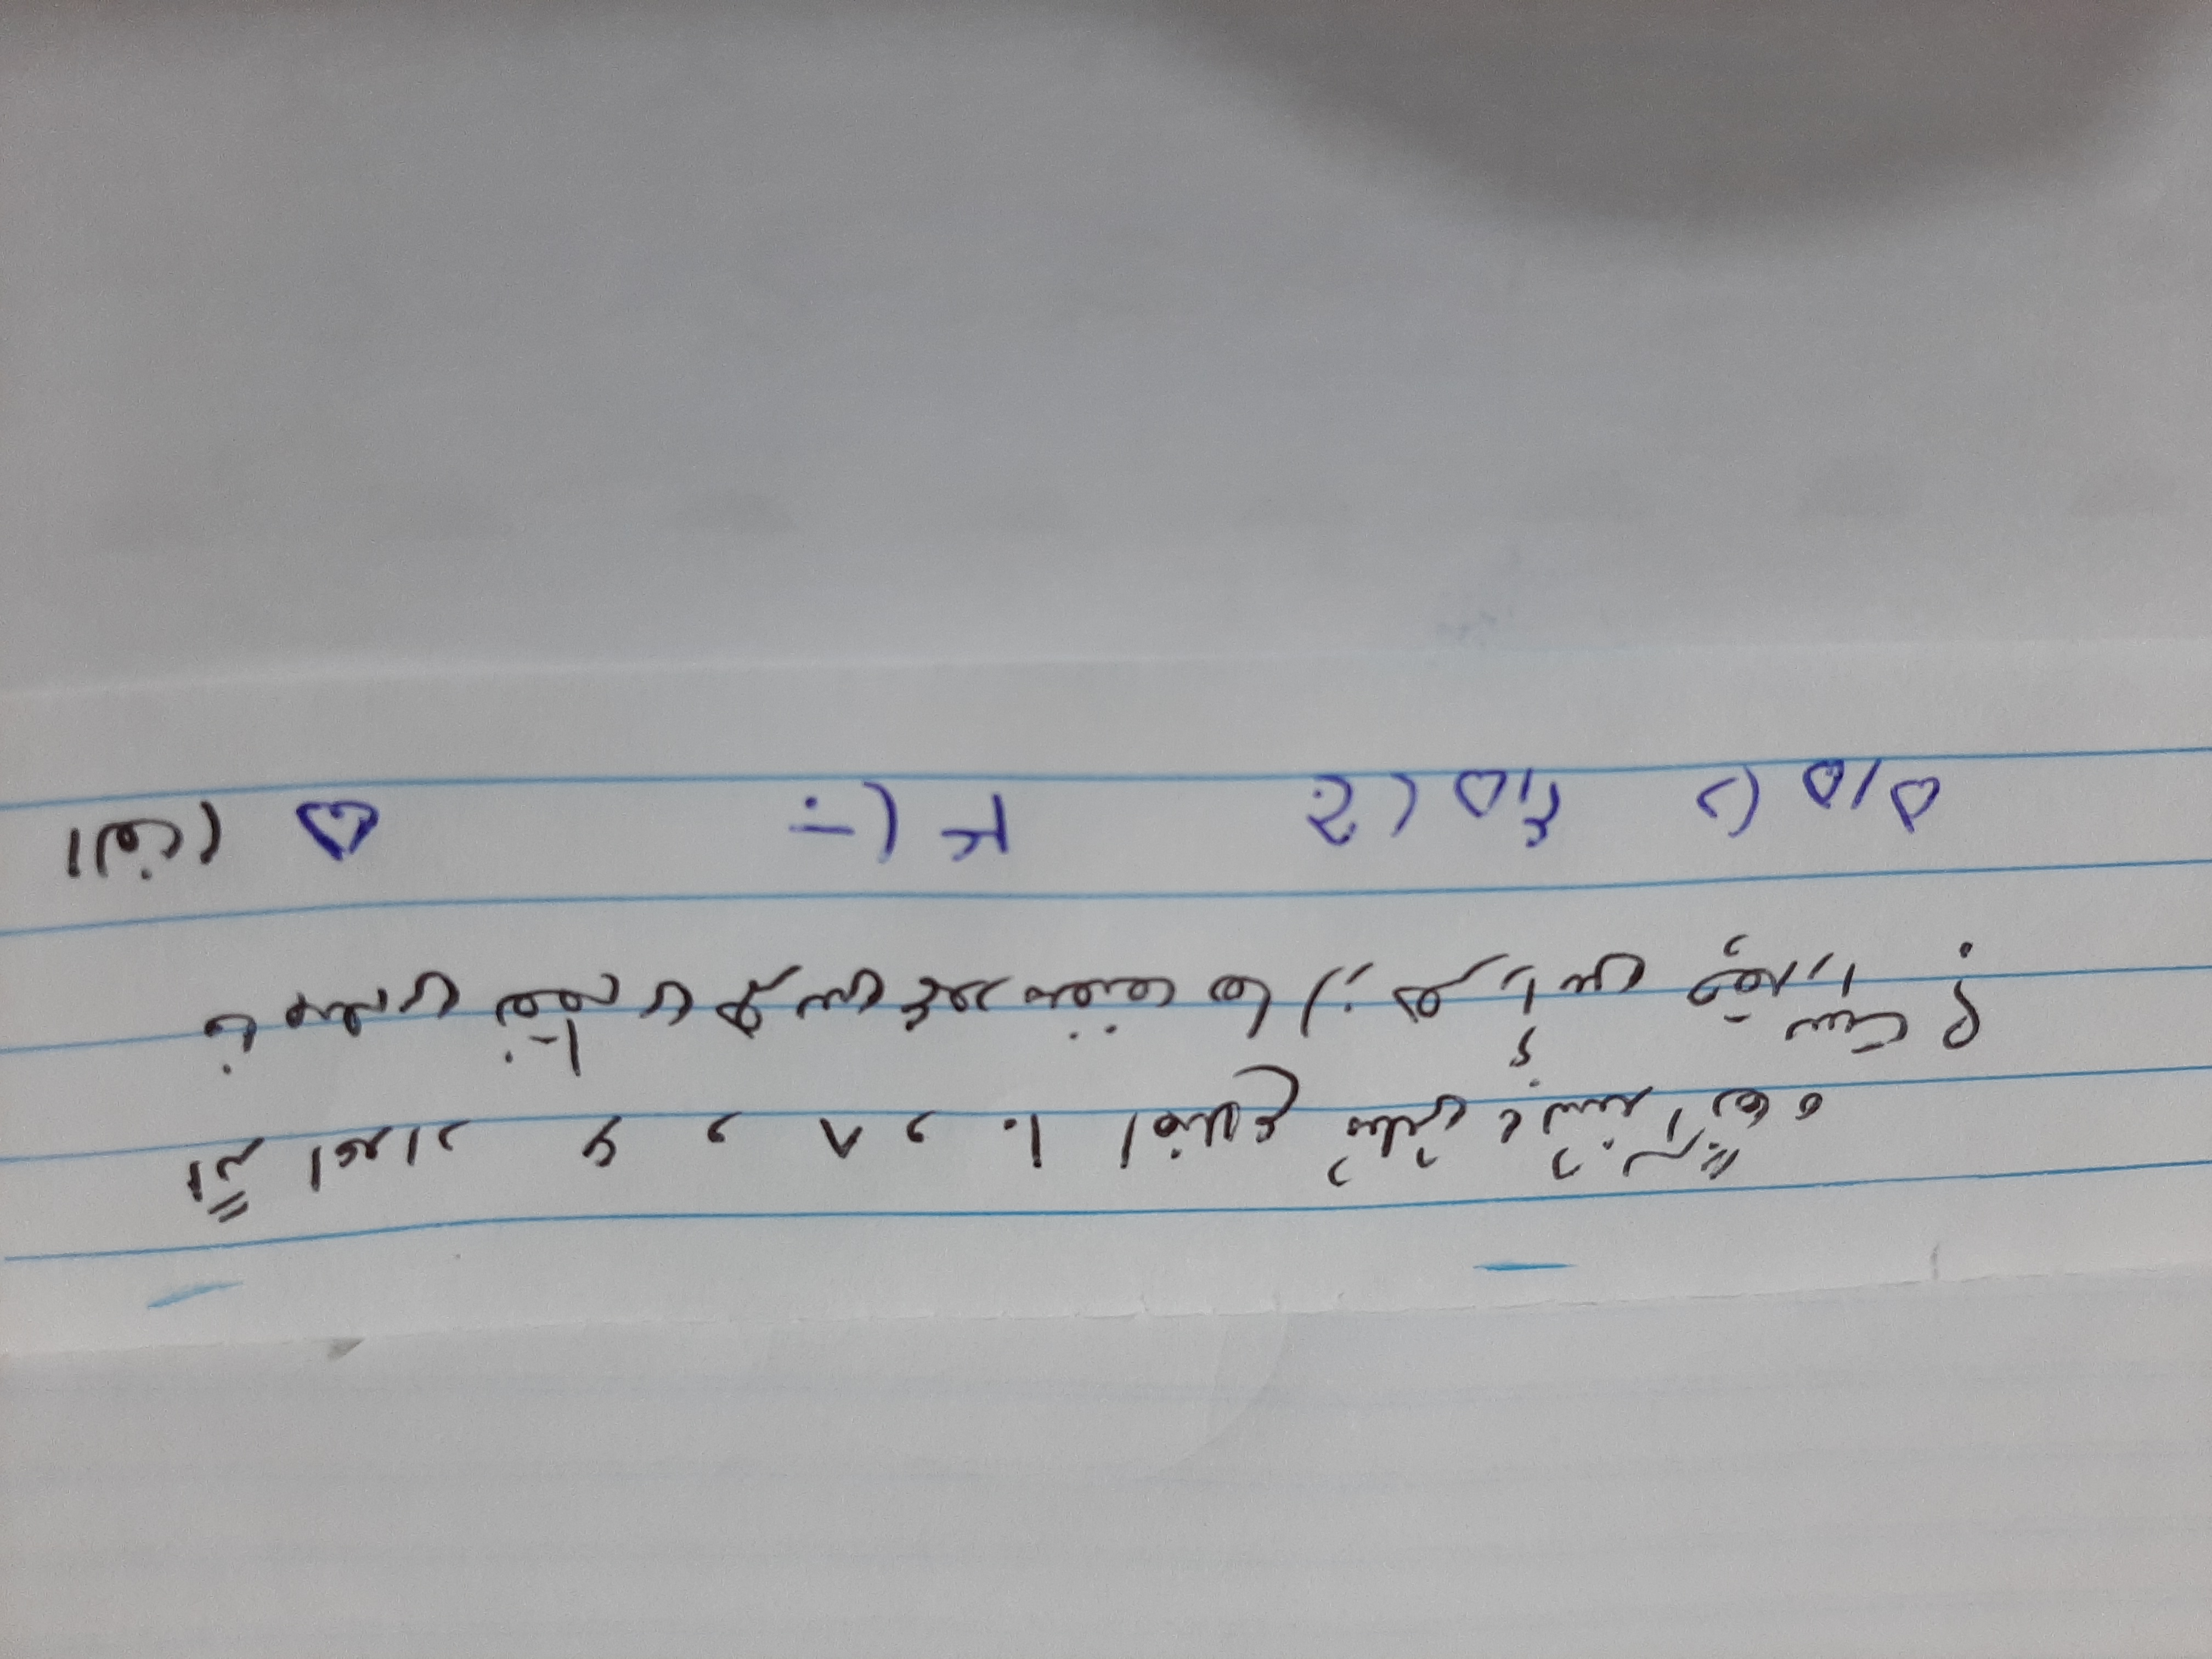 اگر اعداد ۶ و ۸ و ۱۰ اضلاع مثلثی باشند آنگاه
فاصله‌ی نقطه‌ی همرسی عمود منصف ها از هر رأس چقدر است ؟
الف) ۵ ب) ۴ ج) ۴٫۵ د) ۵٫۵